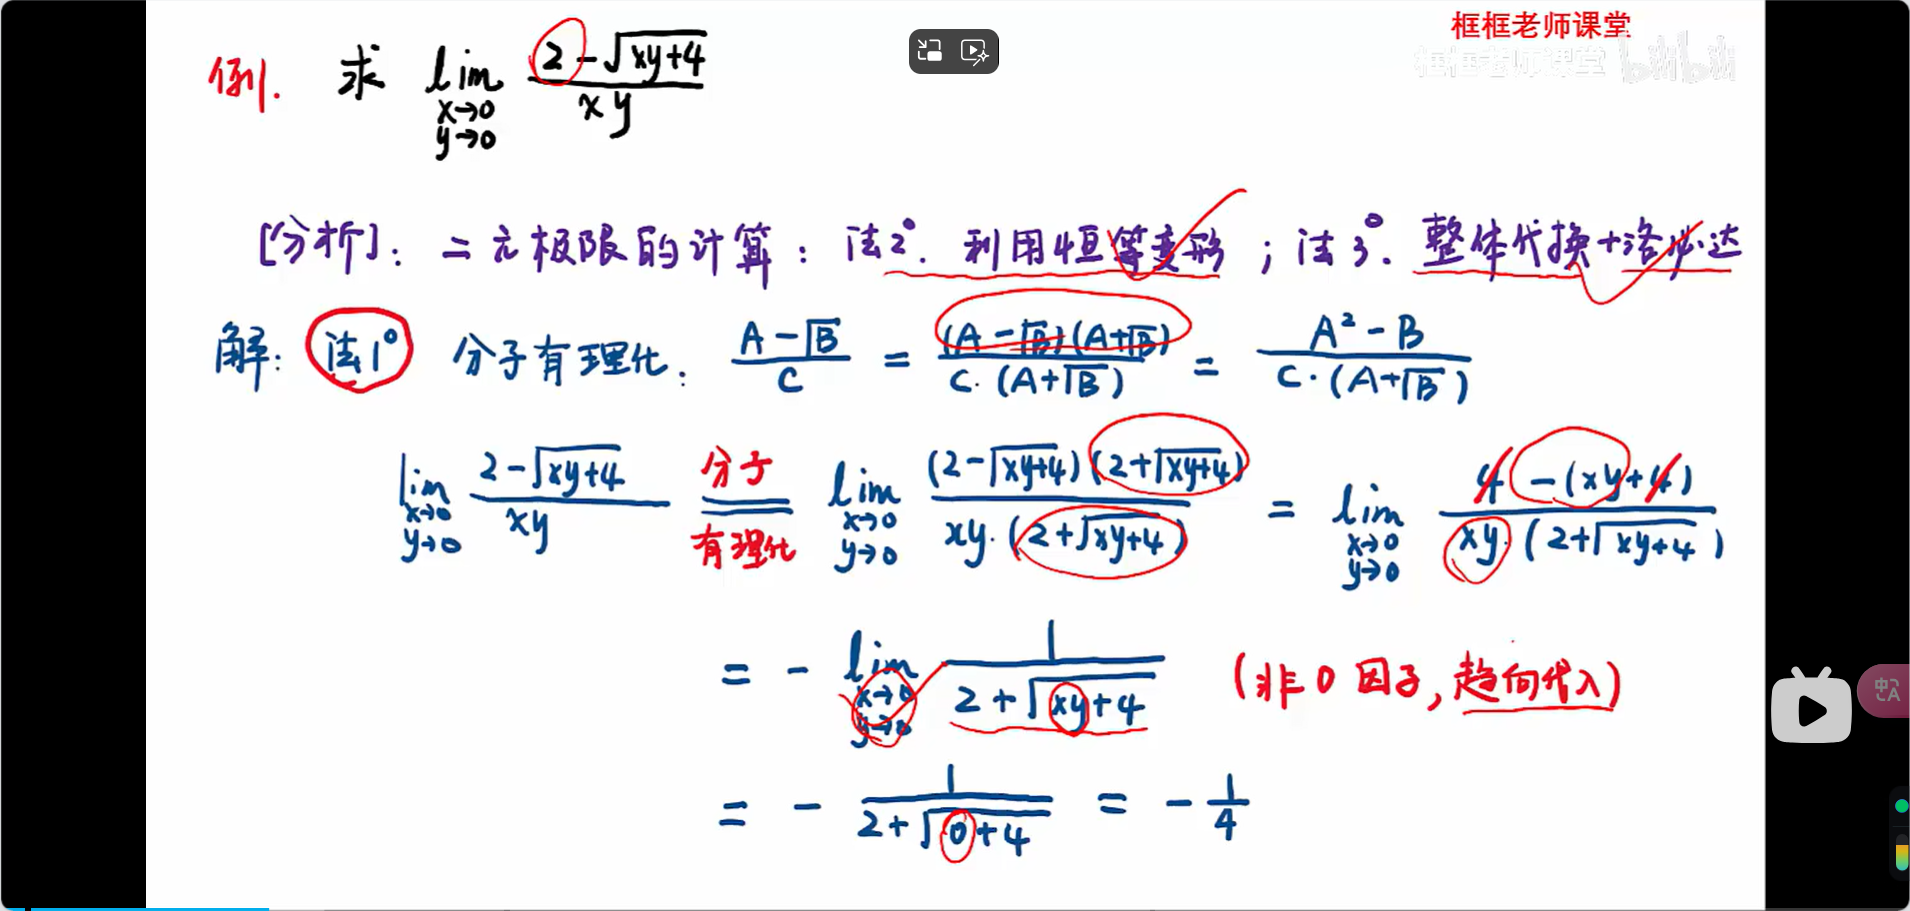 框框老师课堂
框框老师课堂 bilibili
例. 求 lim x→0 y→0 (2-√(xy+4))/(xy)
[分析]: 二元极限的计算: 法2°. 利用恒等变形; 法3°. 整体代换+洛必达
解: 法1° 分子有理化: (A-√B)/C = ((A-√B)(A+√B))/(C·(A+√B)) = (A²-B)/(C·(A+√B))
lim x→0 y→0 (2-√(xy+4))/(xy) 分子有理化 = lim x→0 y→0 ((2-√(xy+4))(2+√(xy+4)))/(xy·(2+√(xy+4))) = lim x→0 y→0 (4-(xy+4))/(xy·(2+√(xy+4)))
= - lim x→0 y→0 1/(2+√(xy+4)) (非0因子,趋向代入)
= - 1/(2+√(0+4)) = - 1/4
中A